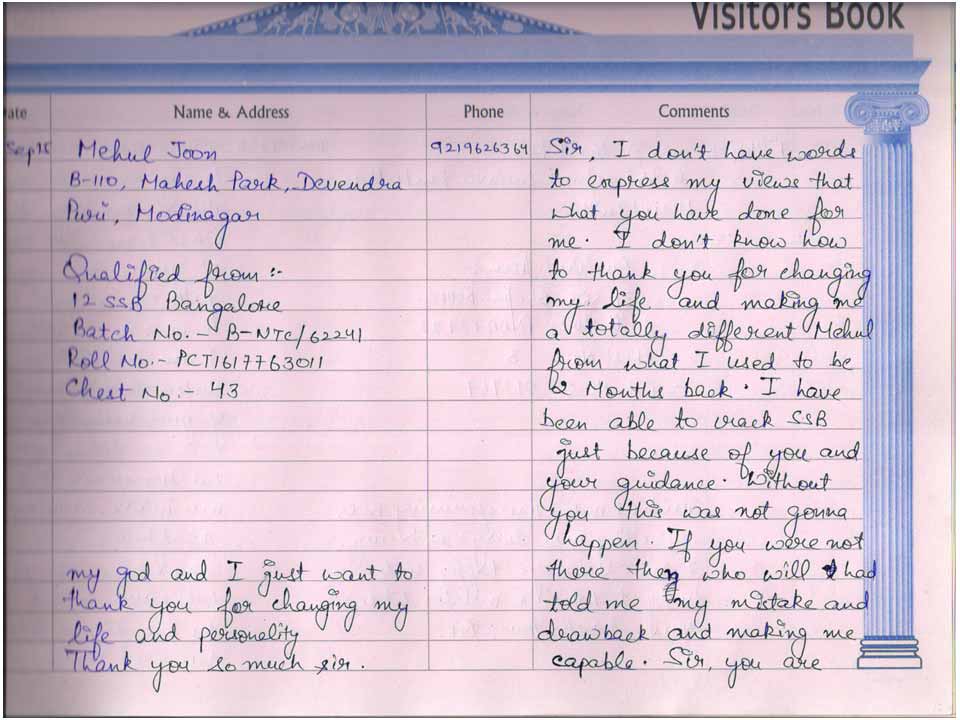 Visitors Book
ate
Name & Address
Phone
Comments
Sep15
Mehul Joon
B-110, Mahesh Park, Devendra
Puri, Modinagar
9219626364
Qualified from :-
12 SSB Bangalore
Batch No.- B-NTC/62241
Roll No.- PCT1617763011
Chest No.- 43
Sir, I don't have words
to express my views that
what you have done for
me. I don't know how
to thank you for changing
my life and making me
a totally different Mehul
from what I used to be
2 Months back. I have
been able to crack SSB
just because of you and
your guidance. Without
you this was not gonna
happen. If you were not
there then who will had
told me my mistake and
drawback and making me
capable. Sir, you are
my god and I just want to
thank you for changing my
life and personality
Thank you so much sir.